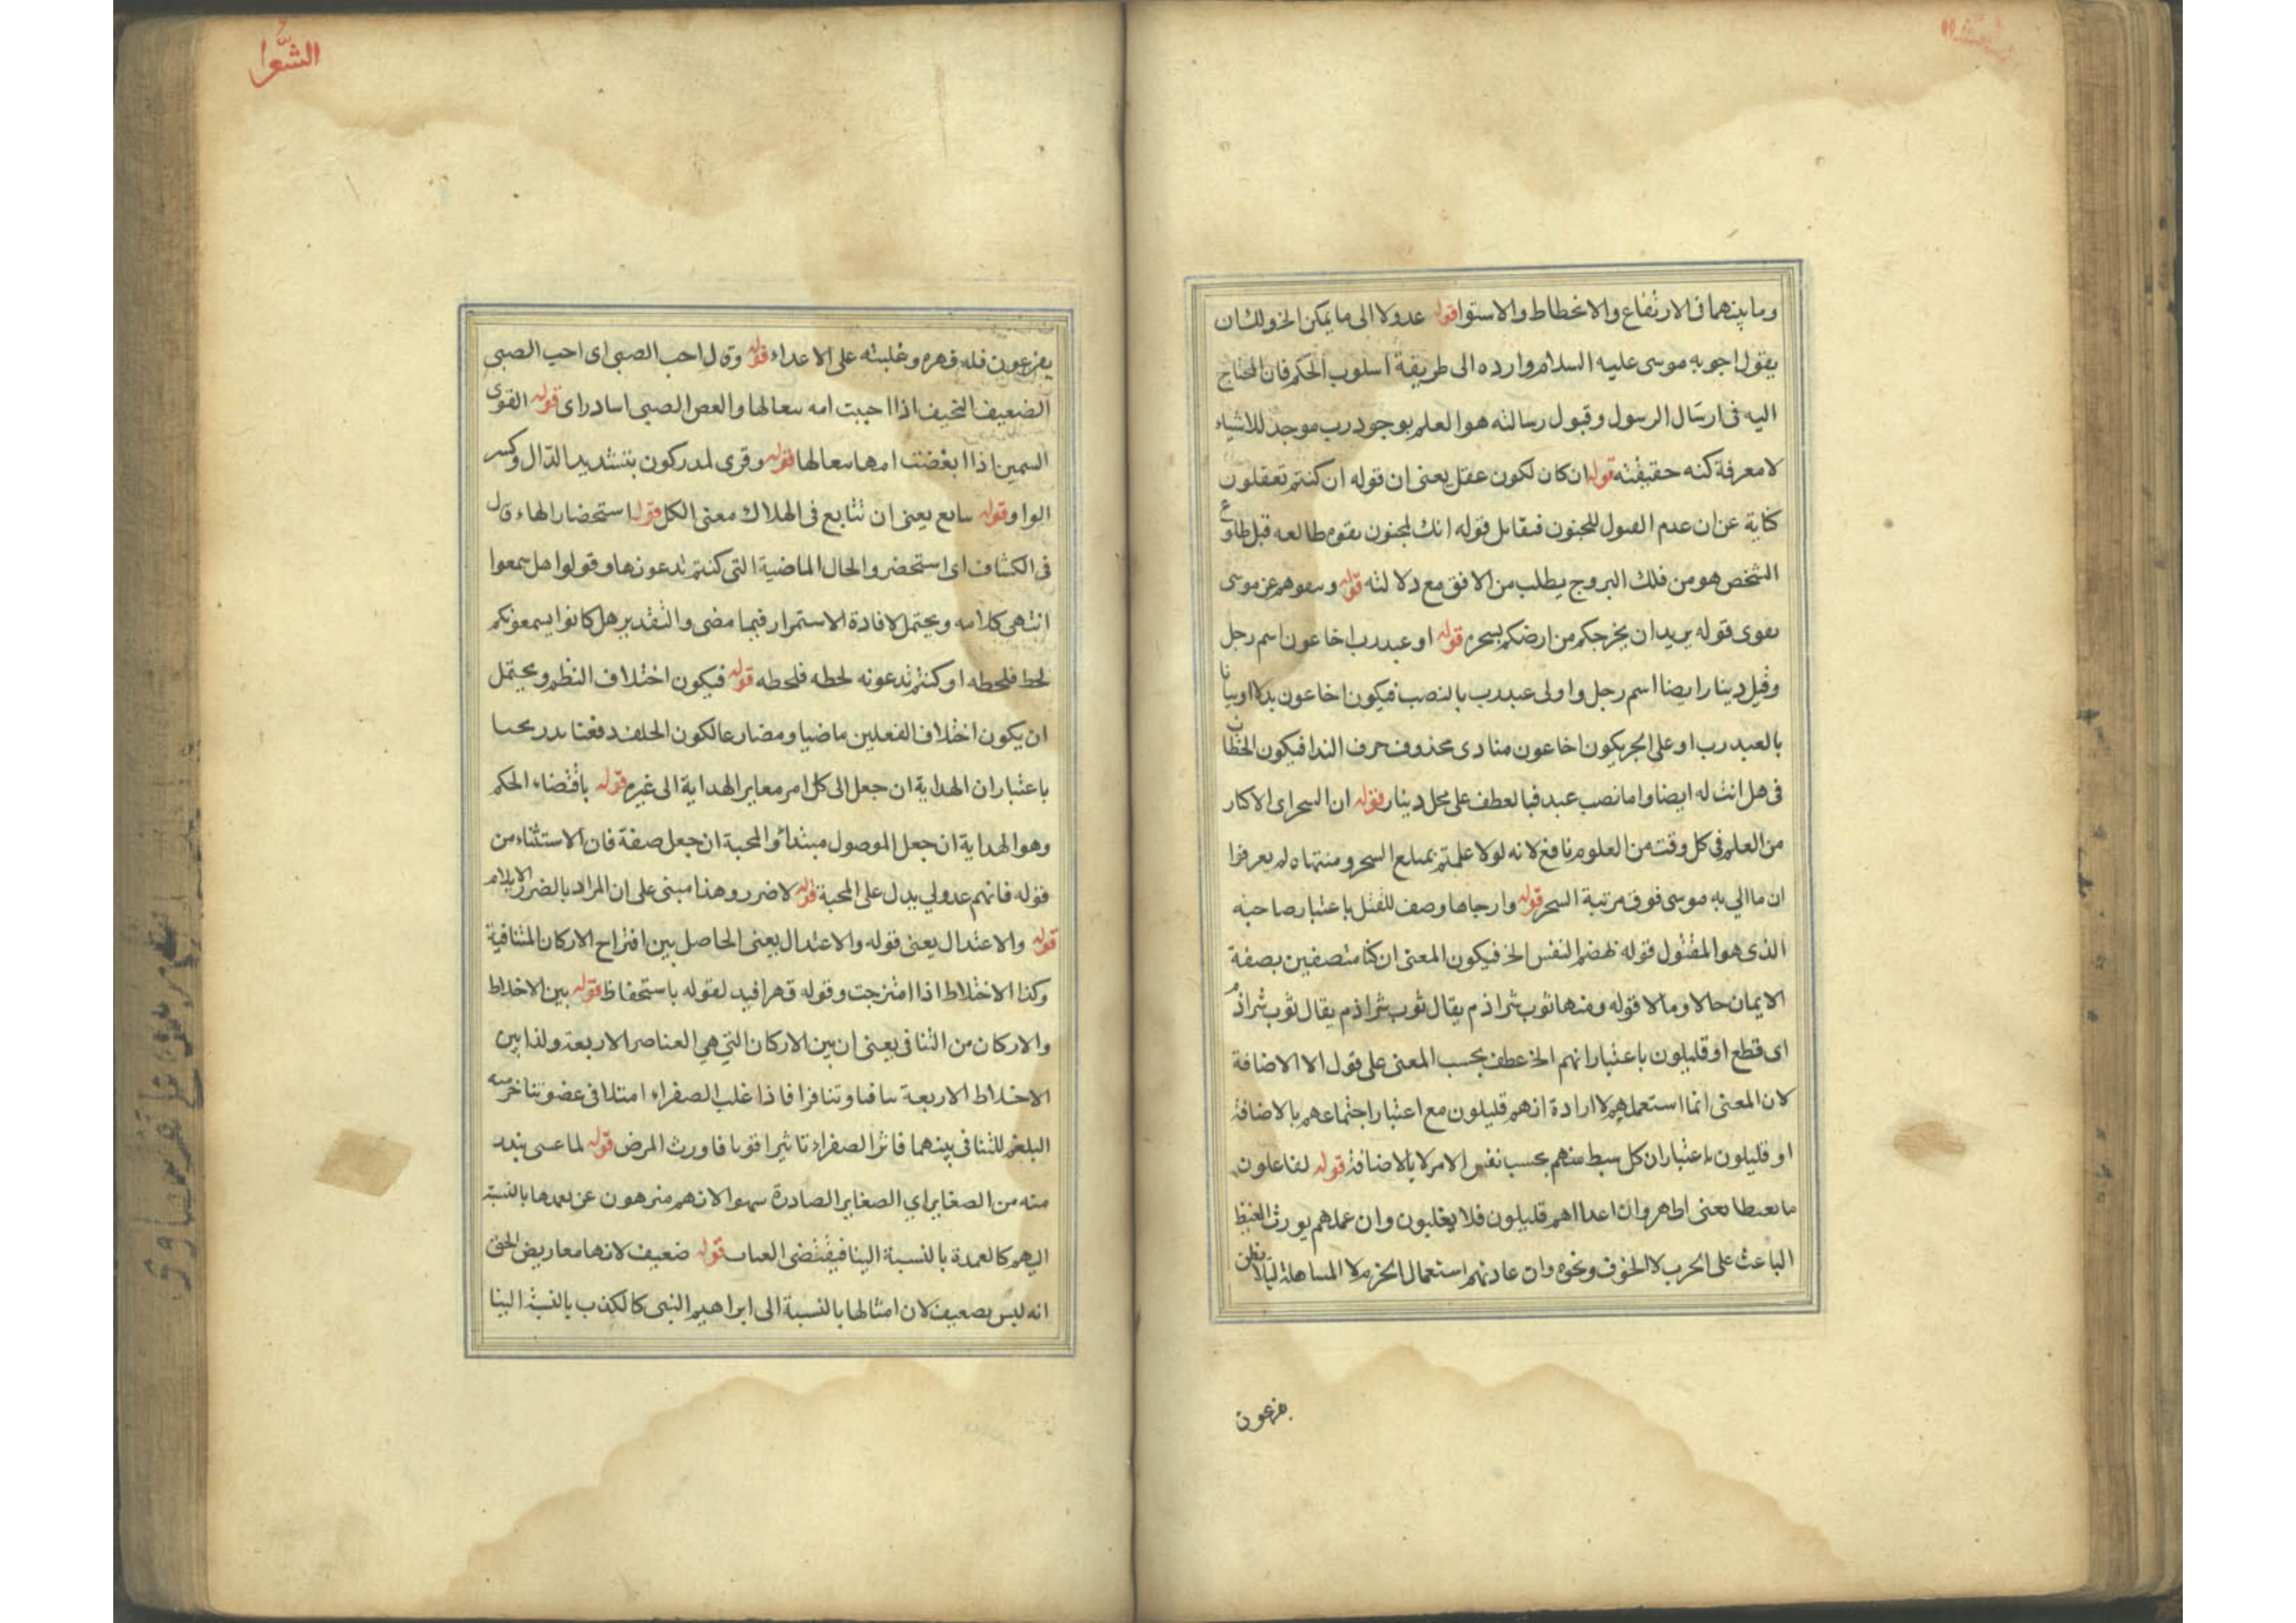 وما بينهما في الارتفاع والانحطاط والاستوا قوله عدولا الى ما يمكن الخ ولك ان
يقول اجوبه موسى عليه السلام وارده الى طريقة اسلوب الحكم فان المحتاج
اليه في ارسال الرسول وقبول رسالته هو العلم بوجود رب موجد للاشياء
لا معرفة كنه حقيقته قوله ان كان لكون عقل يعنى ان قوله ان كنتم تعقلون
كناية عن ان عدم القبول للجنون فيقابل قوله انك لمجنون بقوم طالعه قبل طلوع
الشخص هو من فلك البروج يطلب من الافق مع دلالته قوله عن موسى
يقوى قوله يريد ان يخرجكم من ارضكم بسحره قوله او عبد رب اخا عون اسم رجل
وقيل دينار ايضا اسم رجل واولى عبد رب بالنصب فيكون اخا عون بدلا او بيانا
بالعبد رب او على الجر يكون اخا عون منادى محذوف حرف الندا فيكون الخطاب
في هل انت له ايضا واما نصب عبد فبالعطف على محل دينار قوله ان السحر اى الاكار
من العلم في كل وقت من العلوم نافع لانه لولا علمتم بمبلغ السحر ومنتهاه لم يعرفوا
ان ما الى به موسى فوق مرتبة السحر قوله وارجاها وصف للفتل باعتبار صاحبه
الذى هو المقتول قوله لهضم النفس الخ فيكون المعنى ان كنا متصفين بصفة
الايمان حالا ومالا قوله ومنها ثوب شراذم يقال ثوب شراذم يقال ثوب شراذم
اى قطع او قليلون باعتبار انهم الخ عطف بحسب المعنى على قول الا الاضافة
لان المعنى انما استعملهم لا ارادة انهم قليلون مع اعتبار اجتماعهم بالاضافة
او قليلون باعتبار ان كل سبط منهم بحسب نفس الامر لا بالاضافة قوله لفاعلون
ما يغيظنا يعنى اظهروا ان اعدا اهم قليلون فلا يغلبون وان عملهم يورث الغيظ
الباعث على الحرب لا الخوف ونحوه وان عادتهم استعمال الحزم لا المساهلة ليلا يظن
بفرعون
الشعرا
بفرعون فله قهره وغلبته على الاعداء قوله وقال احب الصبى اى احب الصبى
الضعيف النحيف اذا احببت امه تعالها والعص الصبى اسادر اى قوله القوى
السمين اذا ابغضت امها تعالها قوله وقرى لمدركون بتشديد الدال وكسر
الواو قوله تتابع يعنى ان تتابع في الهلاك معنى الكل قوله استحضار الهاء قال
في الكشاف اى استحضروا الحال الماضية التى كنتم تدعونها وقولوا هل سمعوا
انتهى كلامه ويحتمل لافادة الاستمرار فيما مضى والتقدير هل كانوا يسمعونكم
لحظ فلحظه او كنتم تدعونه لحظه فلحظه قوله فيكون اختلاف النظم ويحتمل
ان يكون اختلاف الفعلين ماضيا ومضارعا لكون الخلف دفعتا تدريجيا
باعتبار ان الهداية ان جعل الى كل امر معاير الهداية الى غيره قوله باقتضاء الحكم
وهو الهداية ان جعل الموصول مبتدأ والمحبة ان جعل صفة فان الاستثناء من
قوله فانهم عدو لي يدل على المحبة قوله لا ضرر وهذا مبنى على ان المراد بالضرر الايلام
قوله والاعتدال يعنى قوله والاعتدال يعنى الحاصل بين اقتراح الاركان المتنافية
وكذا الاختلاط اذا امتزجت وقوله قهرا قيد لقوله باستحفاظ قوله بين الاخلاط
والاركان من التنافى يعنى ان بين الاركان التي هي العناصر الاربعة ولذا بين
الاخلاط الاربعة تنافيا وتنافرا فاذا غلب الصفراء امتلا في عضو تنافر منه
البلغم للتنافى بينهما فاثر الصفراء تاثيرا قويا فاورث المرض قوله لما عسى يندر
منه من الصغاير اي الصغاير الصادرة سهوا لانهم منزهون عن بعدها بالنسبة
اليهم كالعمدة بالنسبة الينا فيقتضى العتاب قوله ضعيف لانها معاريض الحق
انه ليس بضعيف لان امثالها بالنسبة الى ابراهيم النبى كالكذب بالنسبة الينا